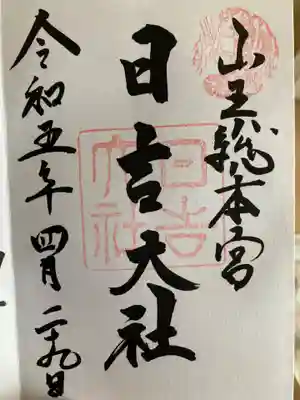 山王総本宮
日吉大社
日吉大社
令和五年四月二十九日